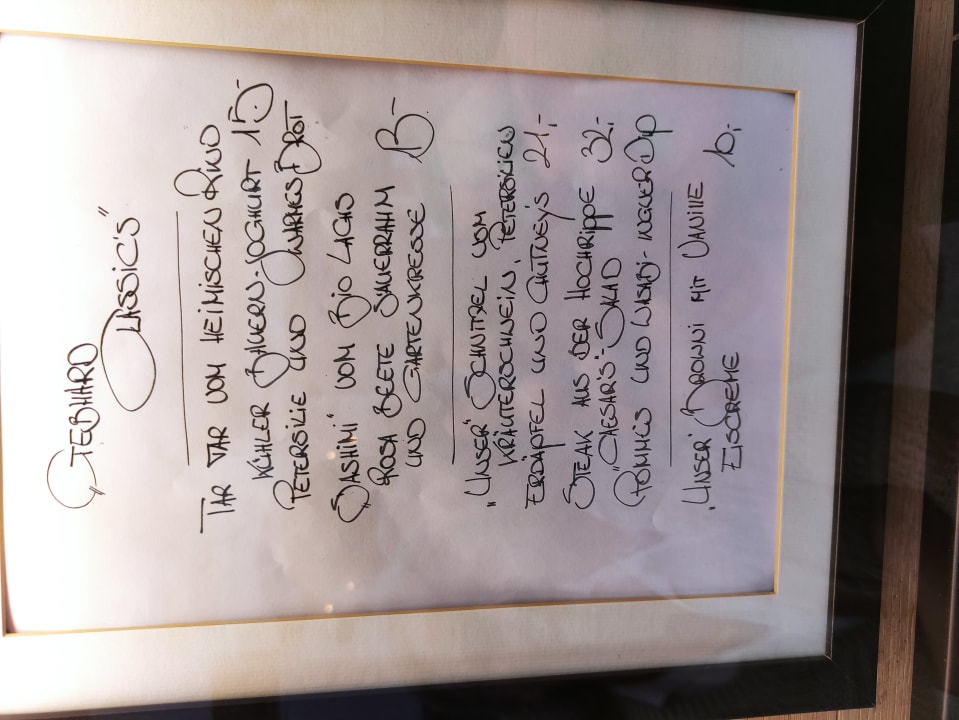 „GIEBHARD
CLASSIC'S"
TAR TAR VOM HEIMISCHEN RIND
KÜHLER BAUERN-JOGHURT 15.-
PETERSILIE UND WARMES BROT
„SASHIMI" VOM BIO LACHS
ROSA BEETE SAUERRAHM
UND GARTENKRESSE 13-
"UNSER" SCHNITZEL VOM
KRÄUTERSCHWEIN, PETERSILIEN
ERDÄPFEL UND CHUTNEY'S 21,-
STEAK AUS DER HOCHRIPPE 32.-
„CAESAR'S"-SALAD
POMMES UND WASABI-INGWER DIP
'UNSER' BROWNI MIT VANILLE
EISCREME 10,-